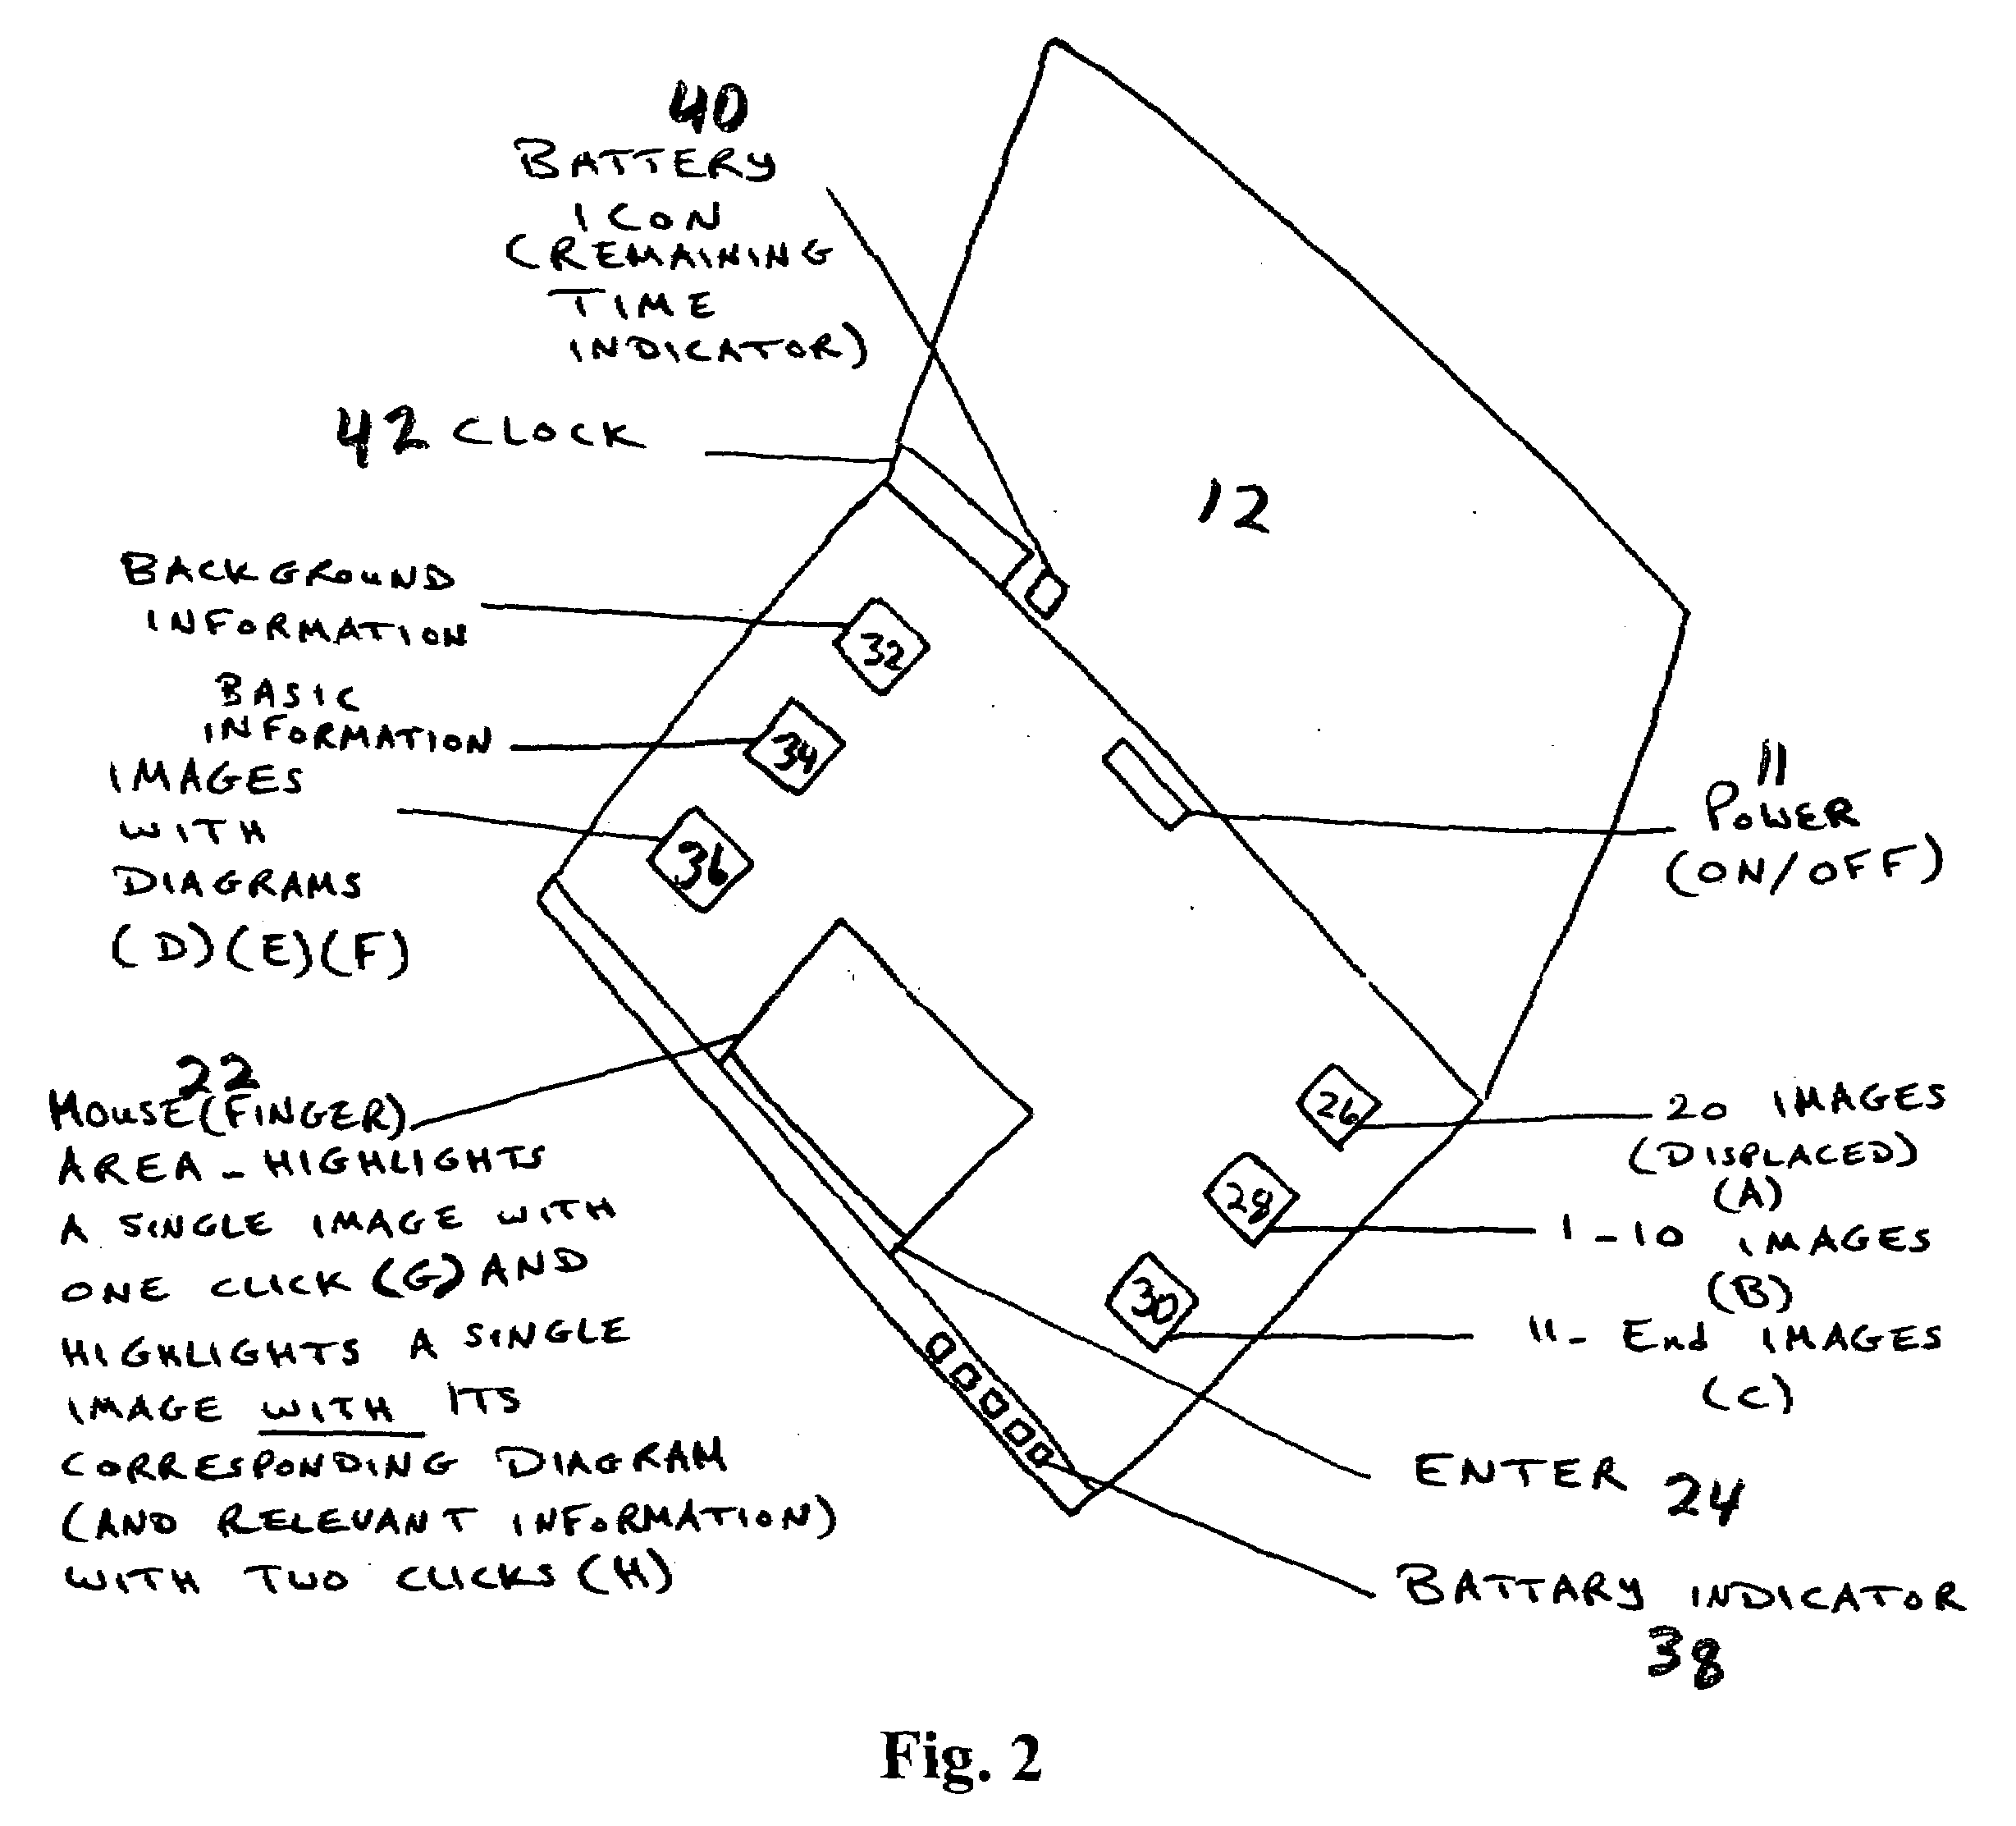 40
BATTERY
ICON
(REMAINING
TIME
INDICATOR)
42 CLOCK
12
BACKGROUND
INFORMATION
32
BASIC
INFORMATION
34
IMAGES
WITH
DIAGRAMS
(D)(E)(F)
36
11
POWER
(ON/OFF)
22
MOUSE(FINGER)
AREA - HIGHLIGHTS
A SINGLE IMAGE WITH
ONE CLICK (G) AND
HIGHLIGHTS A SINGLE
IMAGE WITH ITS
CORRESPONDING DIAGRAM
(AND RELEVANT INFORMATION)
WITH TWO CLICKS (H)
26
20 IMAGES
(DISPLACED)
(A)
28
1-10 IMAGES
(B)
30
11- End IMAGES
(C)
ENTER 24
BATTARY INDICATOR
38
Fig. 2